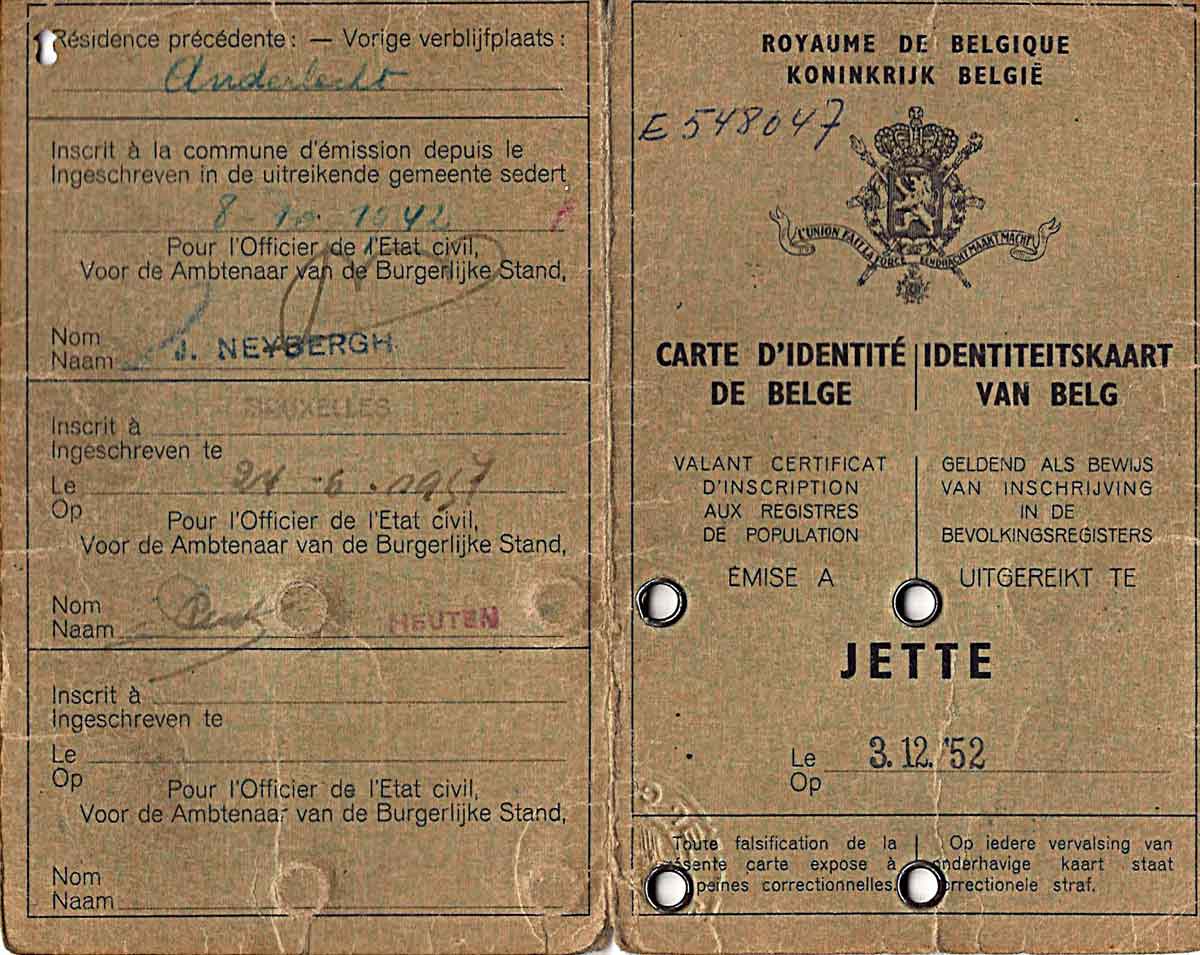 Résidence précédente: — Vorige verblijfplaats:
Anderlecht
Inscrit à la commune d'émission depuis le
Ingeschreven in de uitreikende gemeente sedert
8-10-1942
Pour l'Officier de l'Etat civil,
Voor de Ambtenaar van de Burgerlijke Stand,
Nom
Naam J. NEYBERGH
BRUXELLES
Inscrit à
Ingeschreven te
Le 24.6.1957
Op
Pour l'Officier de l'Etat civil,
Voor de Ambtenaar van de Burgerlijke Stand,
Nom
Naam HEUTEN
Inscrit à
Ingeschreven te
Le
Op
Pour l'Officier de l'Etat civil,
Voor de Ambtenaar van de Burgerlijke Stand,
Nom
Naam
ROYAUME DE BELGIQUE
KONINKRIJK BELGIË
E 548047
L'UNION FAIT LA FORCE EENDRACHT MAAKT MACHT
CARTE D'IDENTITÉ
DE BELGE
IDENTITEITSKAART
VAN BELG
VALANT CERTIFICAT
D'INSCRIPTION
AUX REGISTRES
DE POPULATION
GELDEND ALS BEWIJS
VAN INSCHRIJVING
IN DE
BEVOLKINGSREGISTERS
ÉMISE A
UITGEREIKT TE
JETTE
Le 3.12.'52
Op
Toute falsification de la
présente carte expose à
peines correctionnelles.
Op iedere vervalsing van
onderhavige kaart staat
correctionele straf.